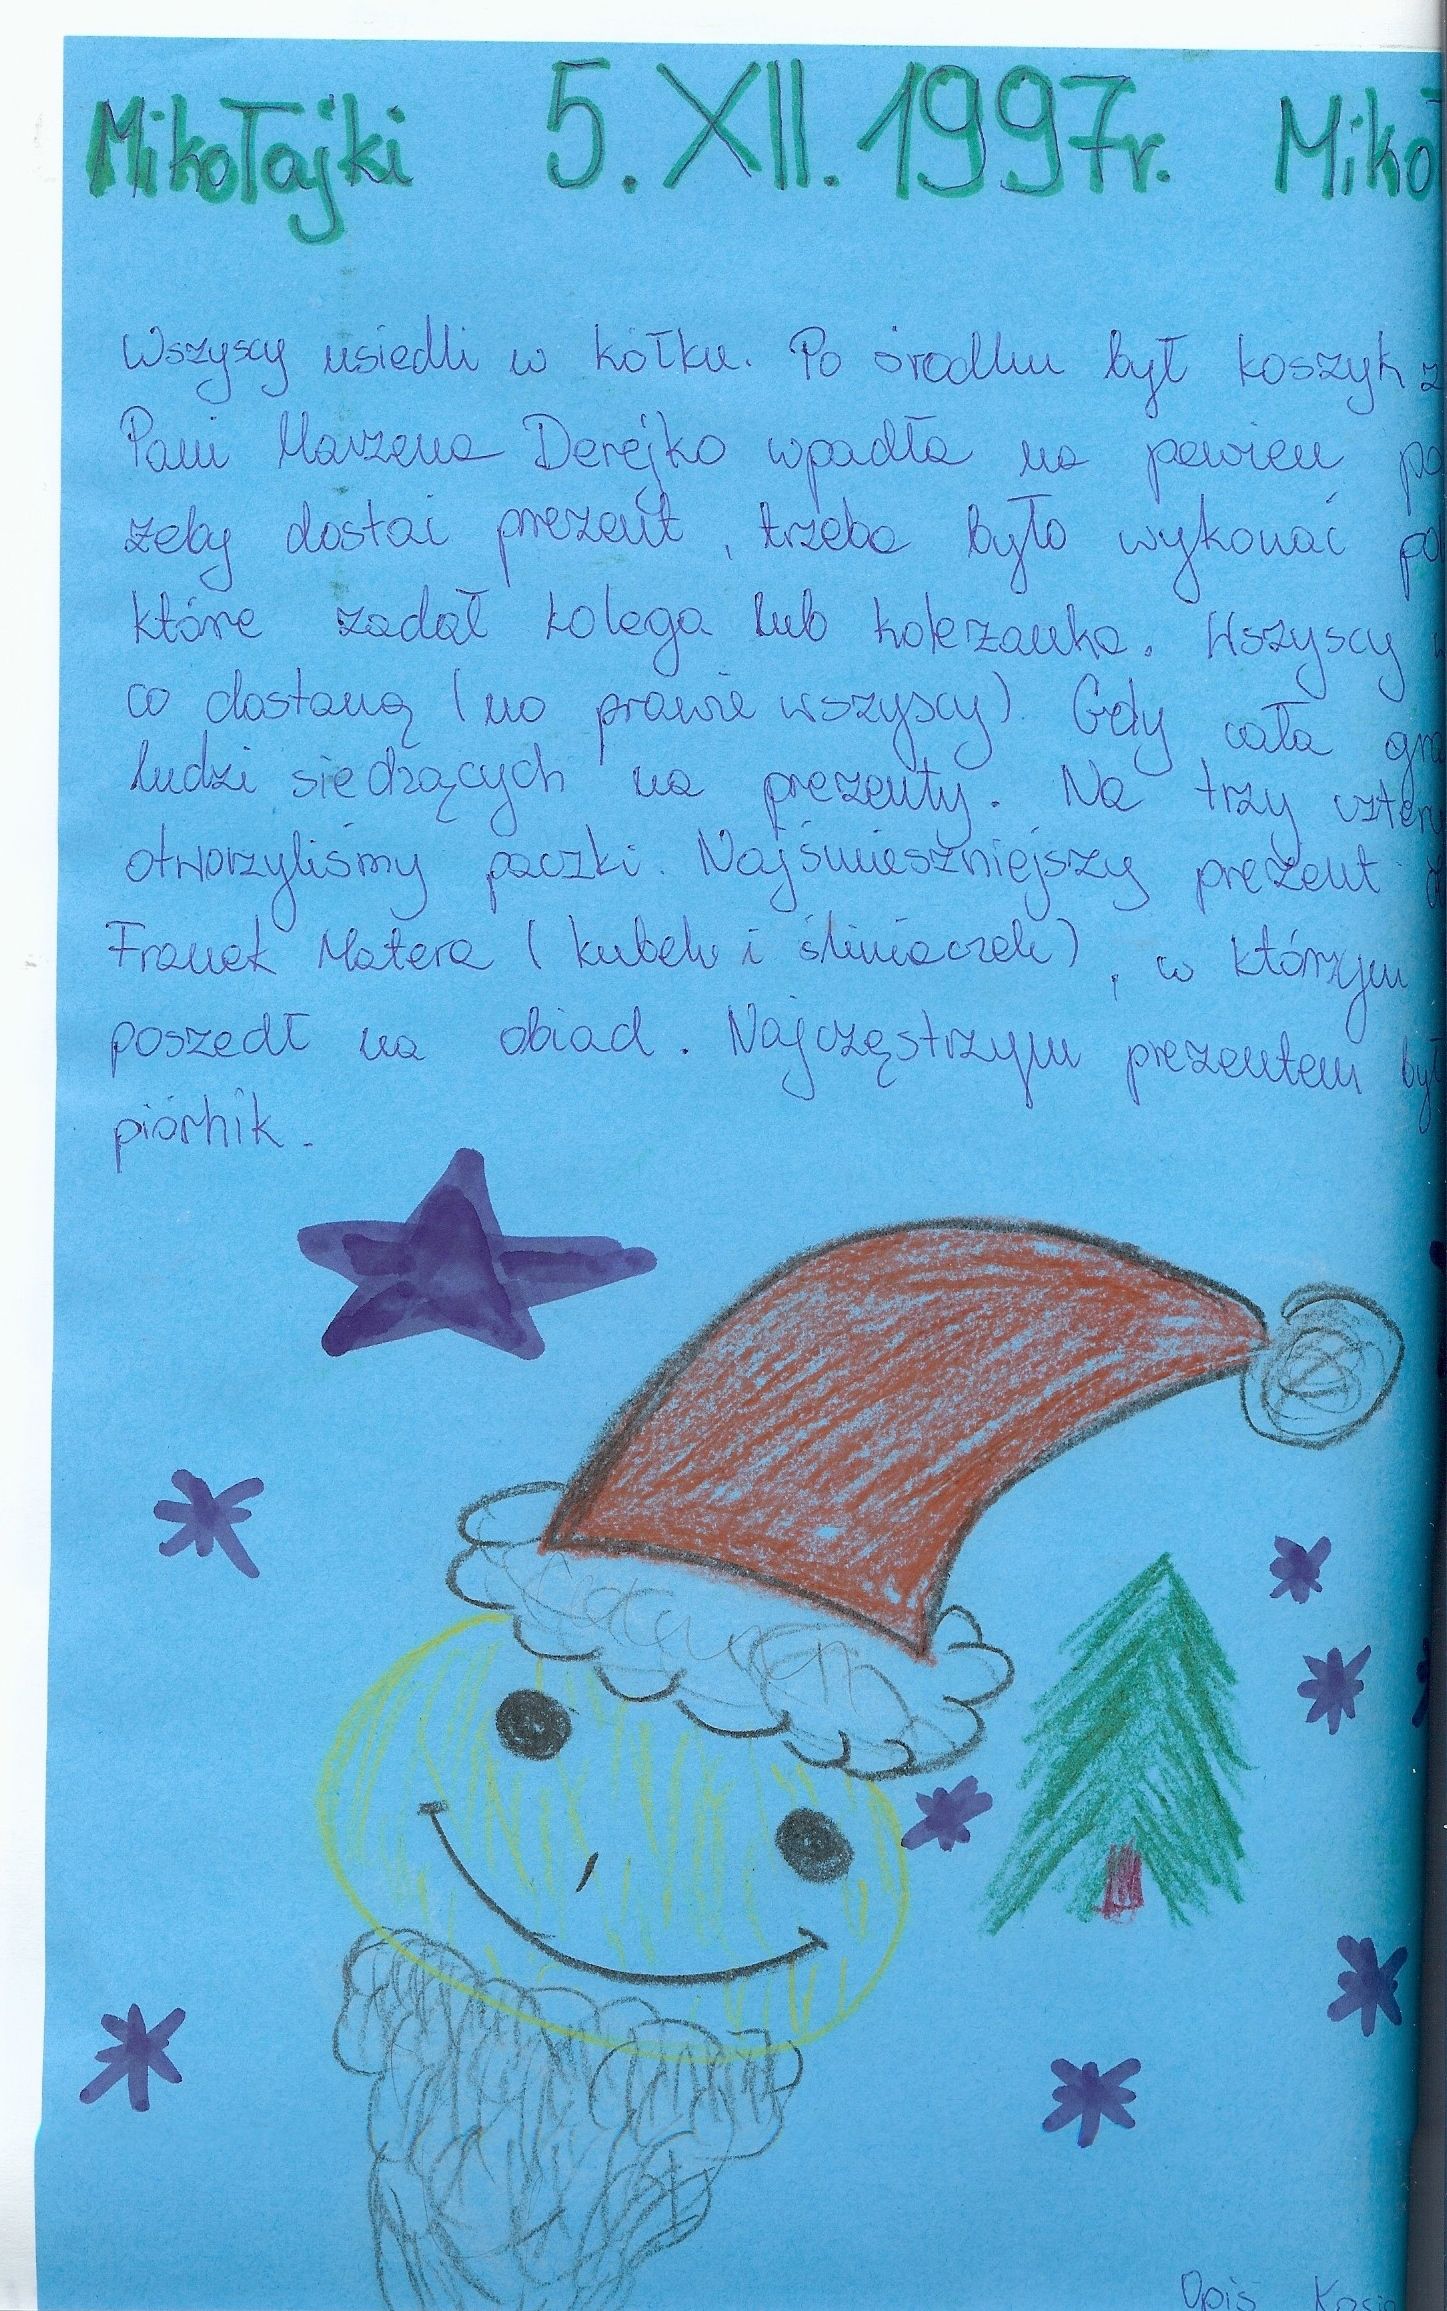 Mikołajki 5. XII. 1997r. Miko
Wszyscy usiedli w kółku. Po środku był koszyk z
Pani Marzena Derejko wpadła na pewien po
żeby dostać prezent, trzeba było wykonać po
które zadał kolega lub koleżanka. Wszyscy
co dostaną (no prawie wszyscy) Gdy cała gra
ludzi siedzących na prezenty. Na trzy cztery
otworzyliśmy paczki. Najśmieszniejszy prezent
Franek Matera (kubek i śliniaczek), w którzym
poszedł na obiad. Najczęstrzym prezentem był
piórnik.
Opis Kasia